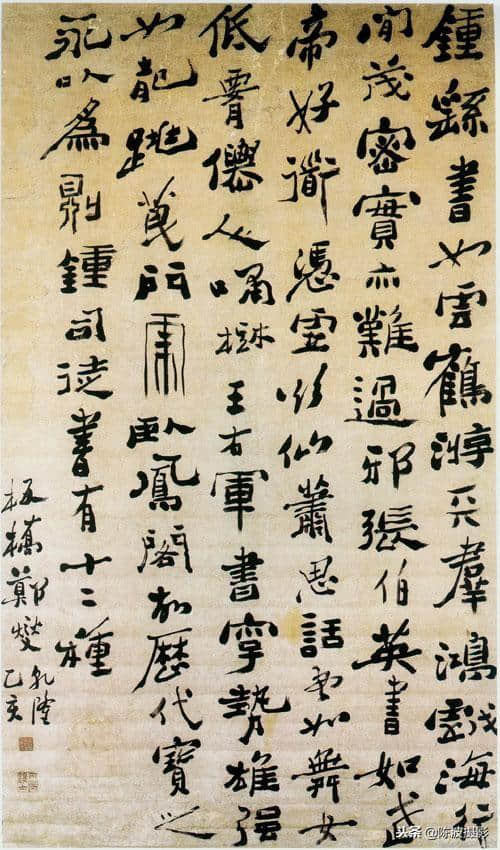 鍾繇書如雲鶴游天羣鴻戲海行
間茂密實亦難過邪張伯英書如武
帝好道憑虛欲仙蕭思話書如舞女
低腰僊人嘯樹王右軍書字勢雄强
如龍跳天門虎臥鳳閣故歷代寶之
永以為訓鍾司徒書有十二種
板橋鄭燮
乾隆
乙亥
头条 @陈波摄影